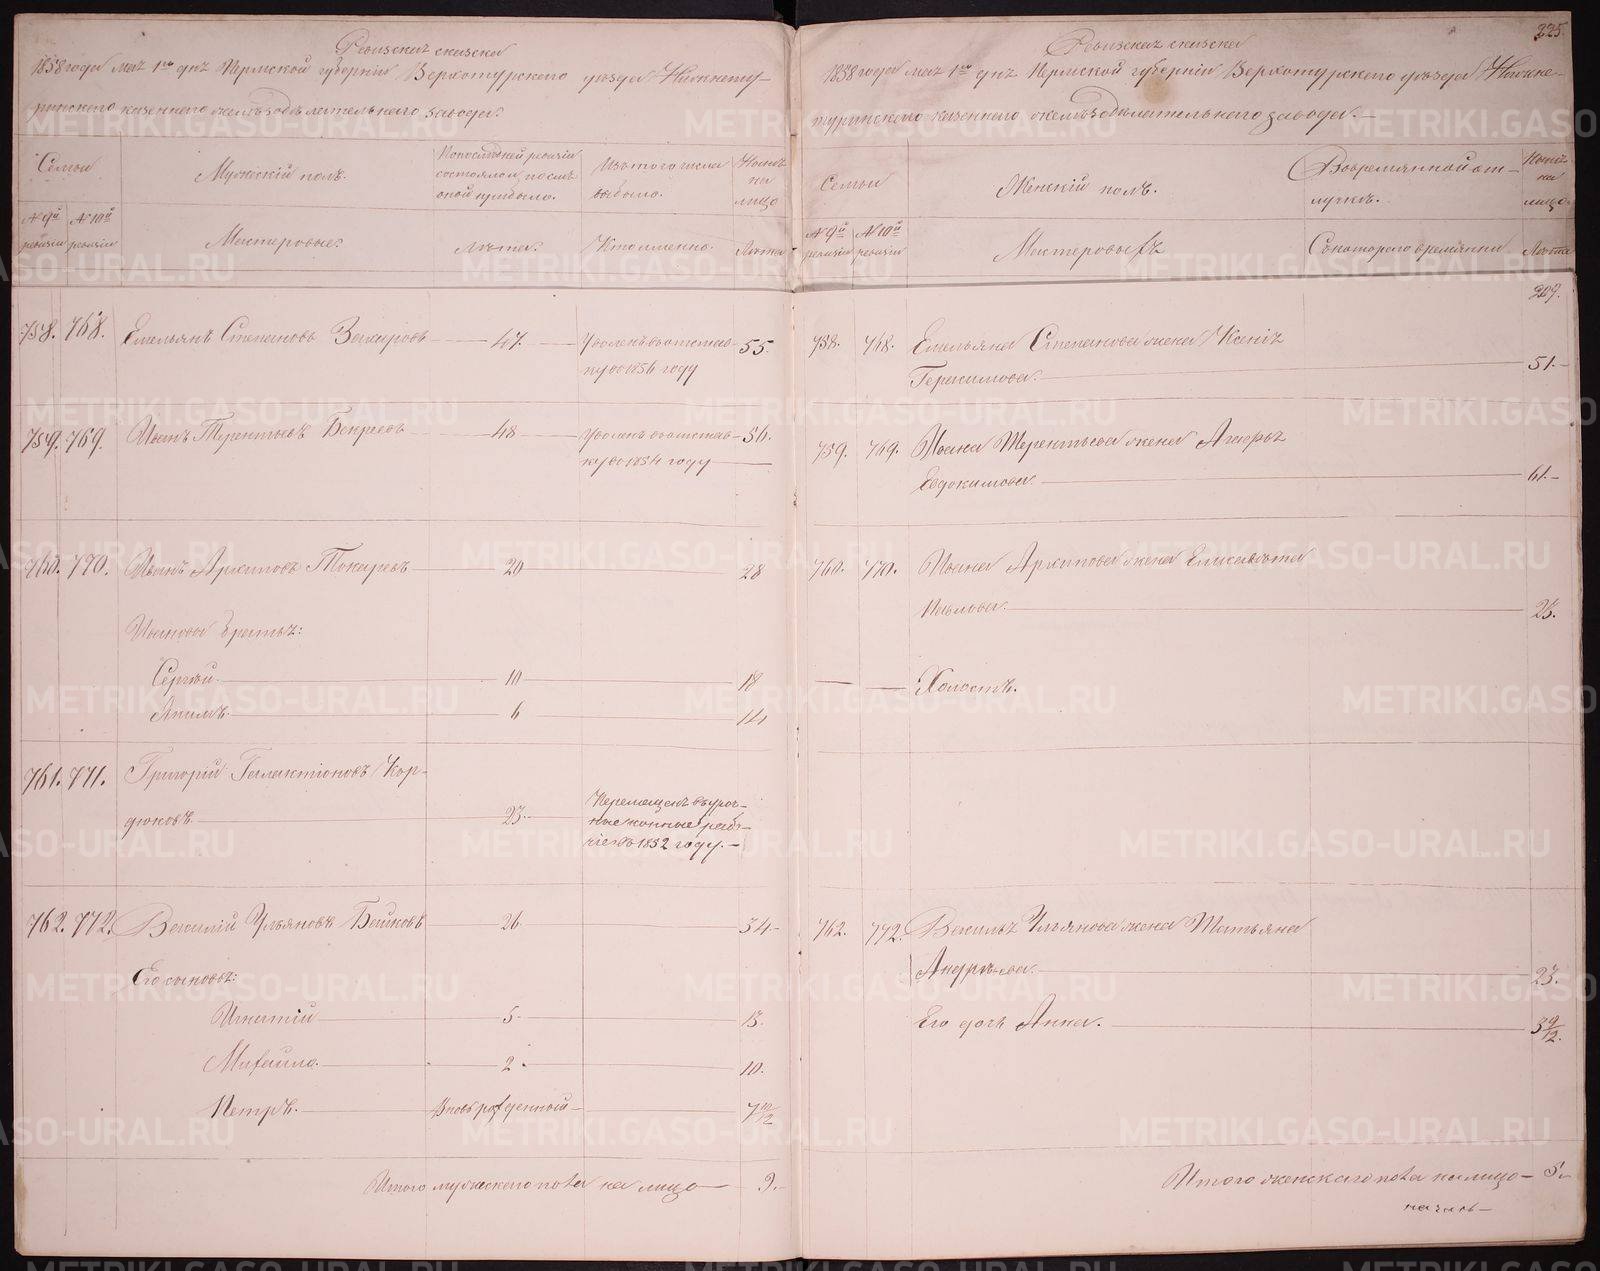 Ревизская сказка
1858 года мая 1го дня Пермской губернии Верхотурского уезда Нижнету-
ринского казенного железоделательнаго завода.
Семьи
Мужескій полъ.
По последней ревизіи
состояло и после
оной прибыло.
Изъ того числа
выбыло.
Ныне
на
лицо
№ 9й ревизіи
№ 10й ревизіи
Мастеровые.
Лета.
Кто именно.
Лета
758. 768. Емельянъ Степановъ 47. Уволенъ въ отстав- 55.
ку въ 1854 году
759. 769. Иванъ Терентьевъ 48 Уволенъ въ отстав- 56.
ку въ 1854 году
760. 770. Иванъ Архиповъ Токаревъ 20 28
Ивановы братья:
Сергѣй 10 18
Акимъ 6 14
761. 771. Григорій Галактіоновъ Кор-
дюковъ 23. Перемещенъ въ уроч-
ные конные рабо-
чіе въ 1852 году.
762. 772. Василій Ульяновъ Байковъ 26 34
Его сыновья:
Игнатій 5 13.
Михайло. 2 10.
Петръ. Вновь рожденный 7 10/12
Итого мужескаго пола на лицо 9.
225.
Ревизская сказка
1858 года мая 1го дня Пермской губерніи Верхотурскаго уезда Нижне-
туринскаго казеннаго железоделательнаго завода.
Семьи
Женскій полъ.
Во временной от-
лучке.
Ныне
на
лицо
№ 9й ревизіи
№ 10й ревизіи
Мастеровыхъ
Съ котораго времяни
Лета
209.
758. 768. Емельяна Степанова жена Ксенія
Герасимова. 51.
759. 769. Ивана Терентьева жена
Евдокимова. 61.
760. 770. Ивана Архипова жена Елисавета
Павлова. 23.
Холостъ.
762. 772. Василья Ульянова жена Татьяна
Андреева. 23.
Его дочь Анна. 3 9/12.
Итого женскаго пола на лицо 5.